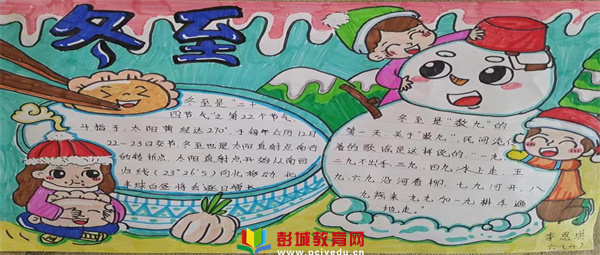 冬至
冬至是"二十
四节气"之第22个节气
斗指子,太阳黄经达270°,于每年公历12月
22-23日交节,冬至也是太阳直射点南行
的转折点,太阳直射点开始从南回
归线(23°26′S)向北移动,北
半球白昼将会逐日增长
冬至是"数九"的
第一天,关于"数九",民间流传
着的歌谣是这样说的,"一九
二九不出手,三九、四九冰上走,五
九、六九沿河看柳,七九河开,八
九燕来,九九加一九,耕牛遍
地走。"
李思琪
彭城教育网
www.pcjyedu.cn